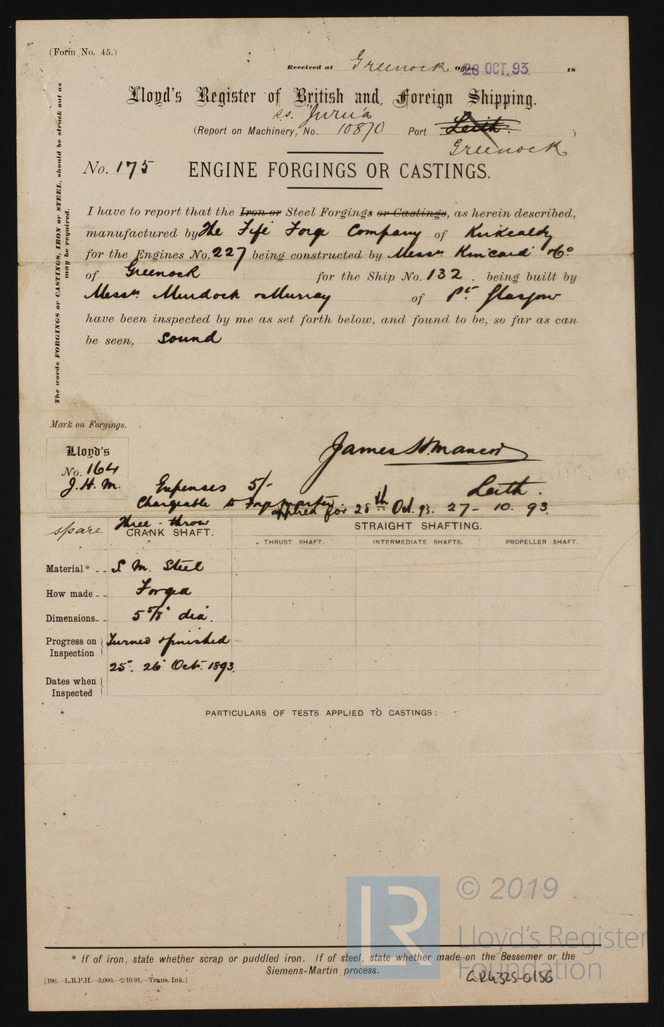 (Form No. 45.)
Received at Greenock Office 28 OCT. 93 18
Lloyd's Register of British and Foreign Shipping.
s.s. "Juruá"
(Report on Machinery, No. 10870 Port Leith.)
Greenock
No. 175 ENGINE FORGINGS OR CASTINGS.
The words FORGINGS or CASTINGS, IRON or STEEL, should be struck out as
may be required.
I have to report that the Iron or Steel Forgings or Castings, as herein described,
manufactured by The Fife Forge Company of Kirkcaldy
for the Engines No. 227 being constructed by Messrs Kincaid & Co
of Greenock for the Ship No. 132. being built by
Messrs Murdock & Murray of Pt. Glasgow
have been inspected by me as set forth below, and found to be, so far as can
be seen, sound
Mark on Forgings.
Lloyd's
No. 164
J.H.M.
James H Mancor
Expenses 5/- Leith.
Chargeable to Forgemaster
applied for 28th Oct. 93. 27 - 10. 93.
spare Three-throw
CRANK SHAFT. STRAIGHT SHAFTING.
THRUST SHAFT. INTERMEDIATE SHAFTS. PROPELLER SHAFT.
Material* S. M. Steel
How made Forged
Dimensions 5 5/8" dia.
Progress on Inspection Turned & finished
Dates when Inspected 25. 26 Oct. 1893
PARTICULARS OF TESTS APPLIED TO CASTINGS:
LR
© 2019
Lloyd's Register
Foundation
* If of iron, state whether scrap or puddled iron. If of steel, state whether made on the Bessemer or the
Siemens-Martin process.
[190.—L.R.P.H.—3,000.—2/10/91.—Trans. Ink.]
GRK325-0156